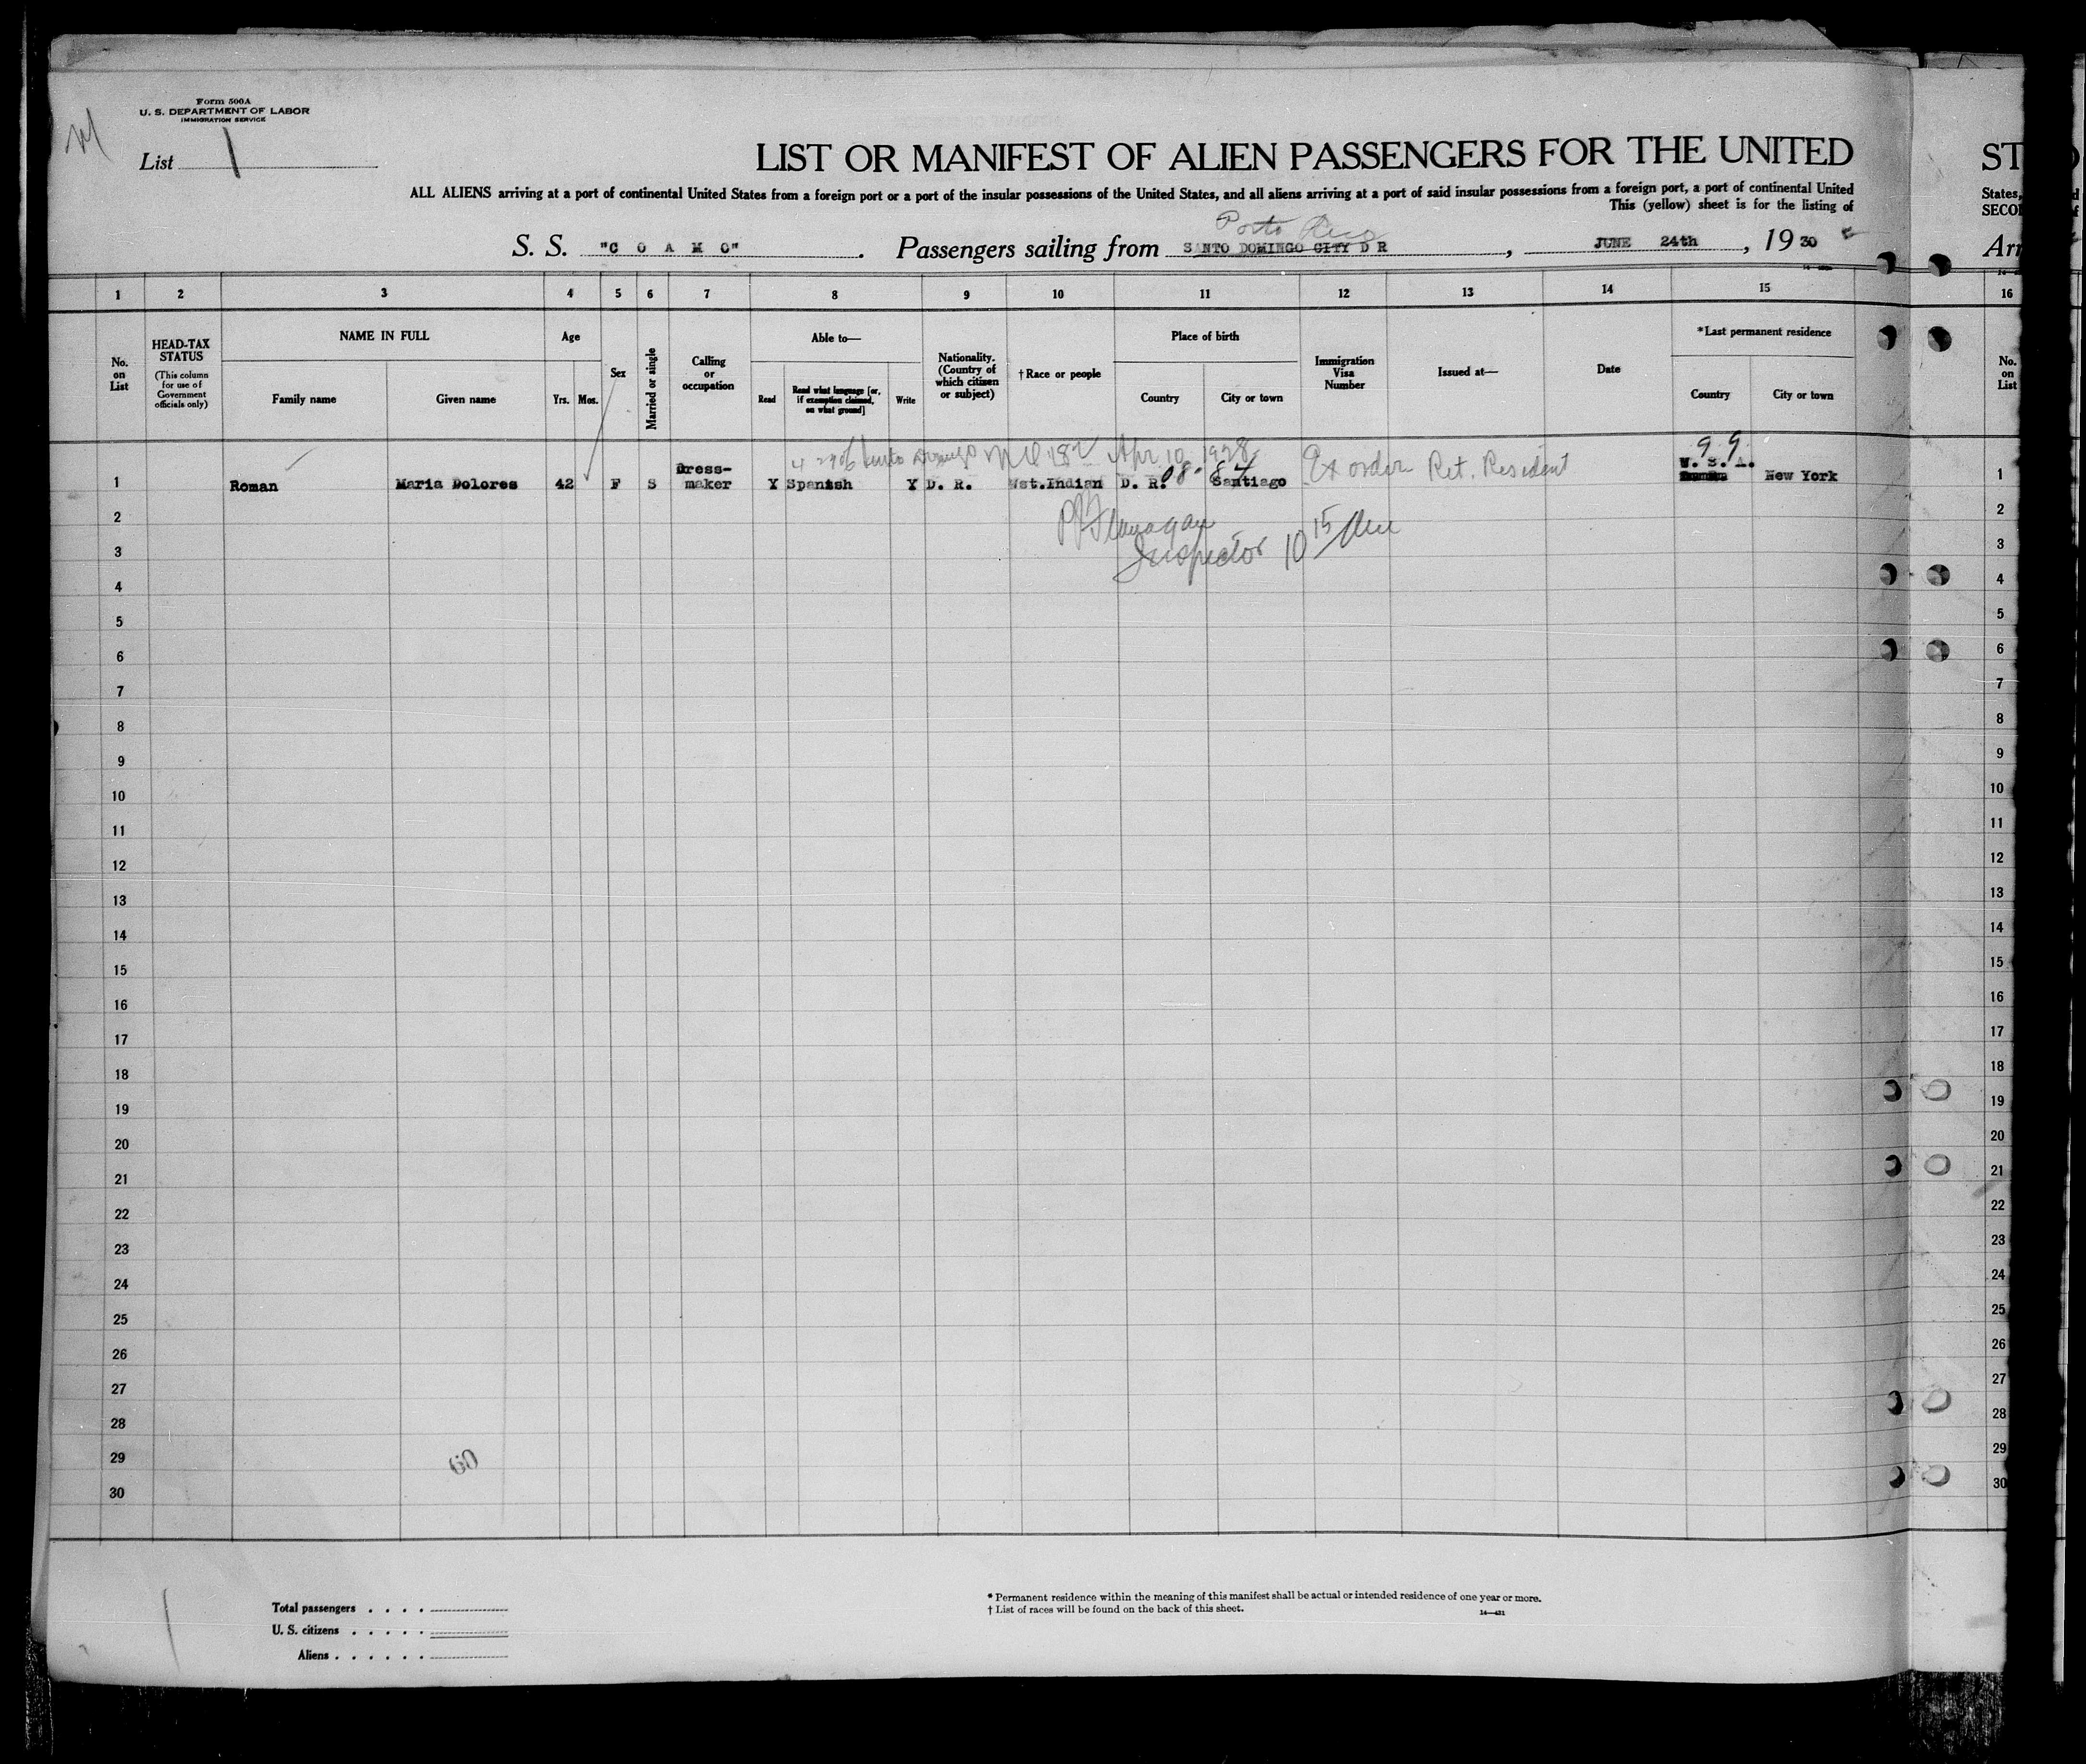 Form 500A
U. S. DEPARTMENT OF LABOR
IMMIGRATION SERVICE
List 1
LIST OR MANIFEST OF ALIEN PASSENGERS FOR THE UNITED
ST
ALL ALIENS arriving at a port of continental United States from a foreign port or a port of the insular possessions of the United States, and all aliens arriving at a port of said insular possessions from a foreign port, a port of continental United
States,
This (yellow) sheet is for the listing of
SECO
Porto Rico
S. S. "C O A M O". Passengers sailing from SANTO DOMINGO CITY D R, JUNE 24th, 19 30
Arr
1 2 3 4 5 6 7 8 9 10 11 12 13 14 15 16
No. on List
HEAD-TAX STATUS
(This column for use of Government officials only)
NAME IN FULL
Family name
Given name
Age
Yrs.
Mos.
Sex
Married or single
Calling or occupation
Able to—
Read
Read what language [or, if exemption claimed, on what ground]
Write
Nationality. (Country of which citizen or subject)
† Race or people
Place of birth
Country
City or town
Immigration Visa Number
Issued at—
Date
*Last permanent residence
Country
City or town
No. on List
Apr 10 1928
99
1 Roman Maria Dolores 42 F S Dress-maker Y Spanish Y D. R. Wst.Indian D. R. 08-84 Santiago Ex order Ret. Resident U. S. A. New York 1
2 2
Flanagan
3 3
Inspector 10 15
4 4
5 5
6 6
7 7
8 8
9 9
10 10
11 11
12 12
13 13
14 14
15 15
16 16
17 17
18 18
19 19
20 20
21 21
22 22
23 23
24 24
25 25
26 26
27 27
28 28
29 29
60
30 30
Total passengers . . . .
U. S. citizens . . . . .
Aliens . . . . . .
* Permanent residence within the meaning of this manifest shall be actual or intended residence of one year or more.
† List of races will be found on the back of this sheet.
14—421